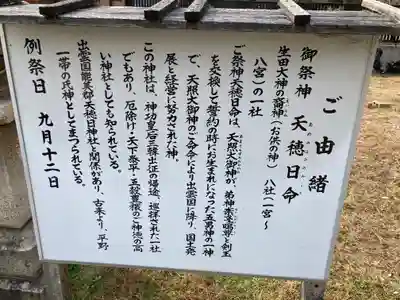 ご由緒
御祭神 天穂日命
生田大神の裔神(お供の神) 八社(一宮~
八宮)の一社
ご祭神天穂日命は、天照大御神が、弟神素盞嗚尊と剣玉
を交換して誓約の時にお生まれになった五男神の一神
で、天照大御神のご命令により出雲国に降り、国土発
展と経営に努力された神
この神社は、神功皇后三韓出征の帰途、巡拝された一社
でもあり、厄除け・天下泰平・五穀豊穣のご神徳の高
い神社としても知られている。
出雲国能義郡天穂日神社と関係があり、古来より、平野
一帯の氏神としてまつられている。
例祭日 九月十二日